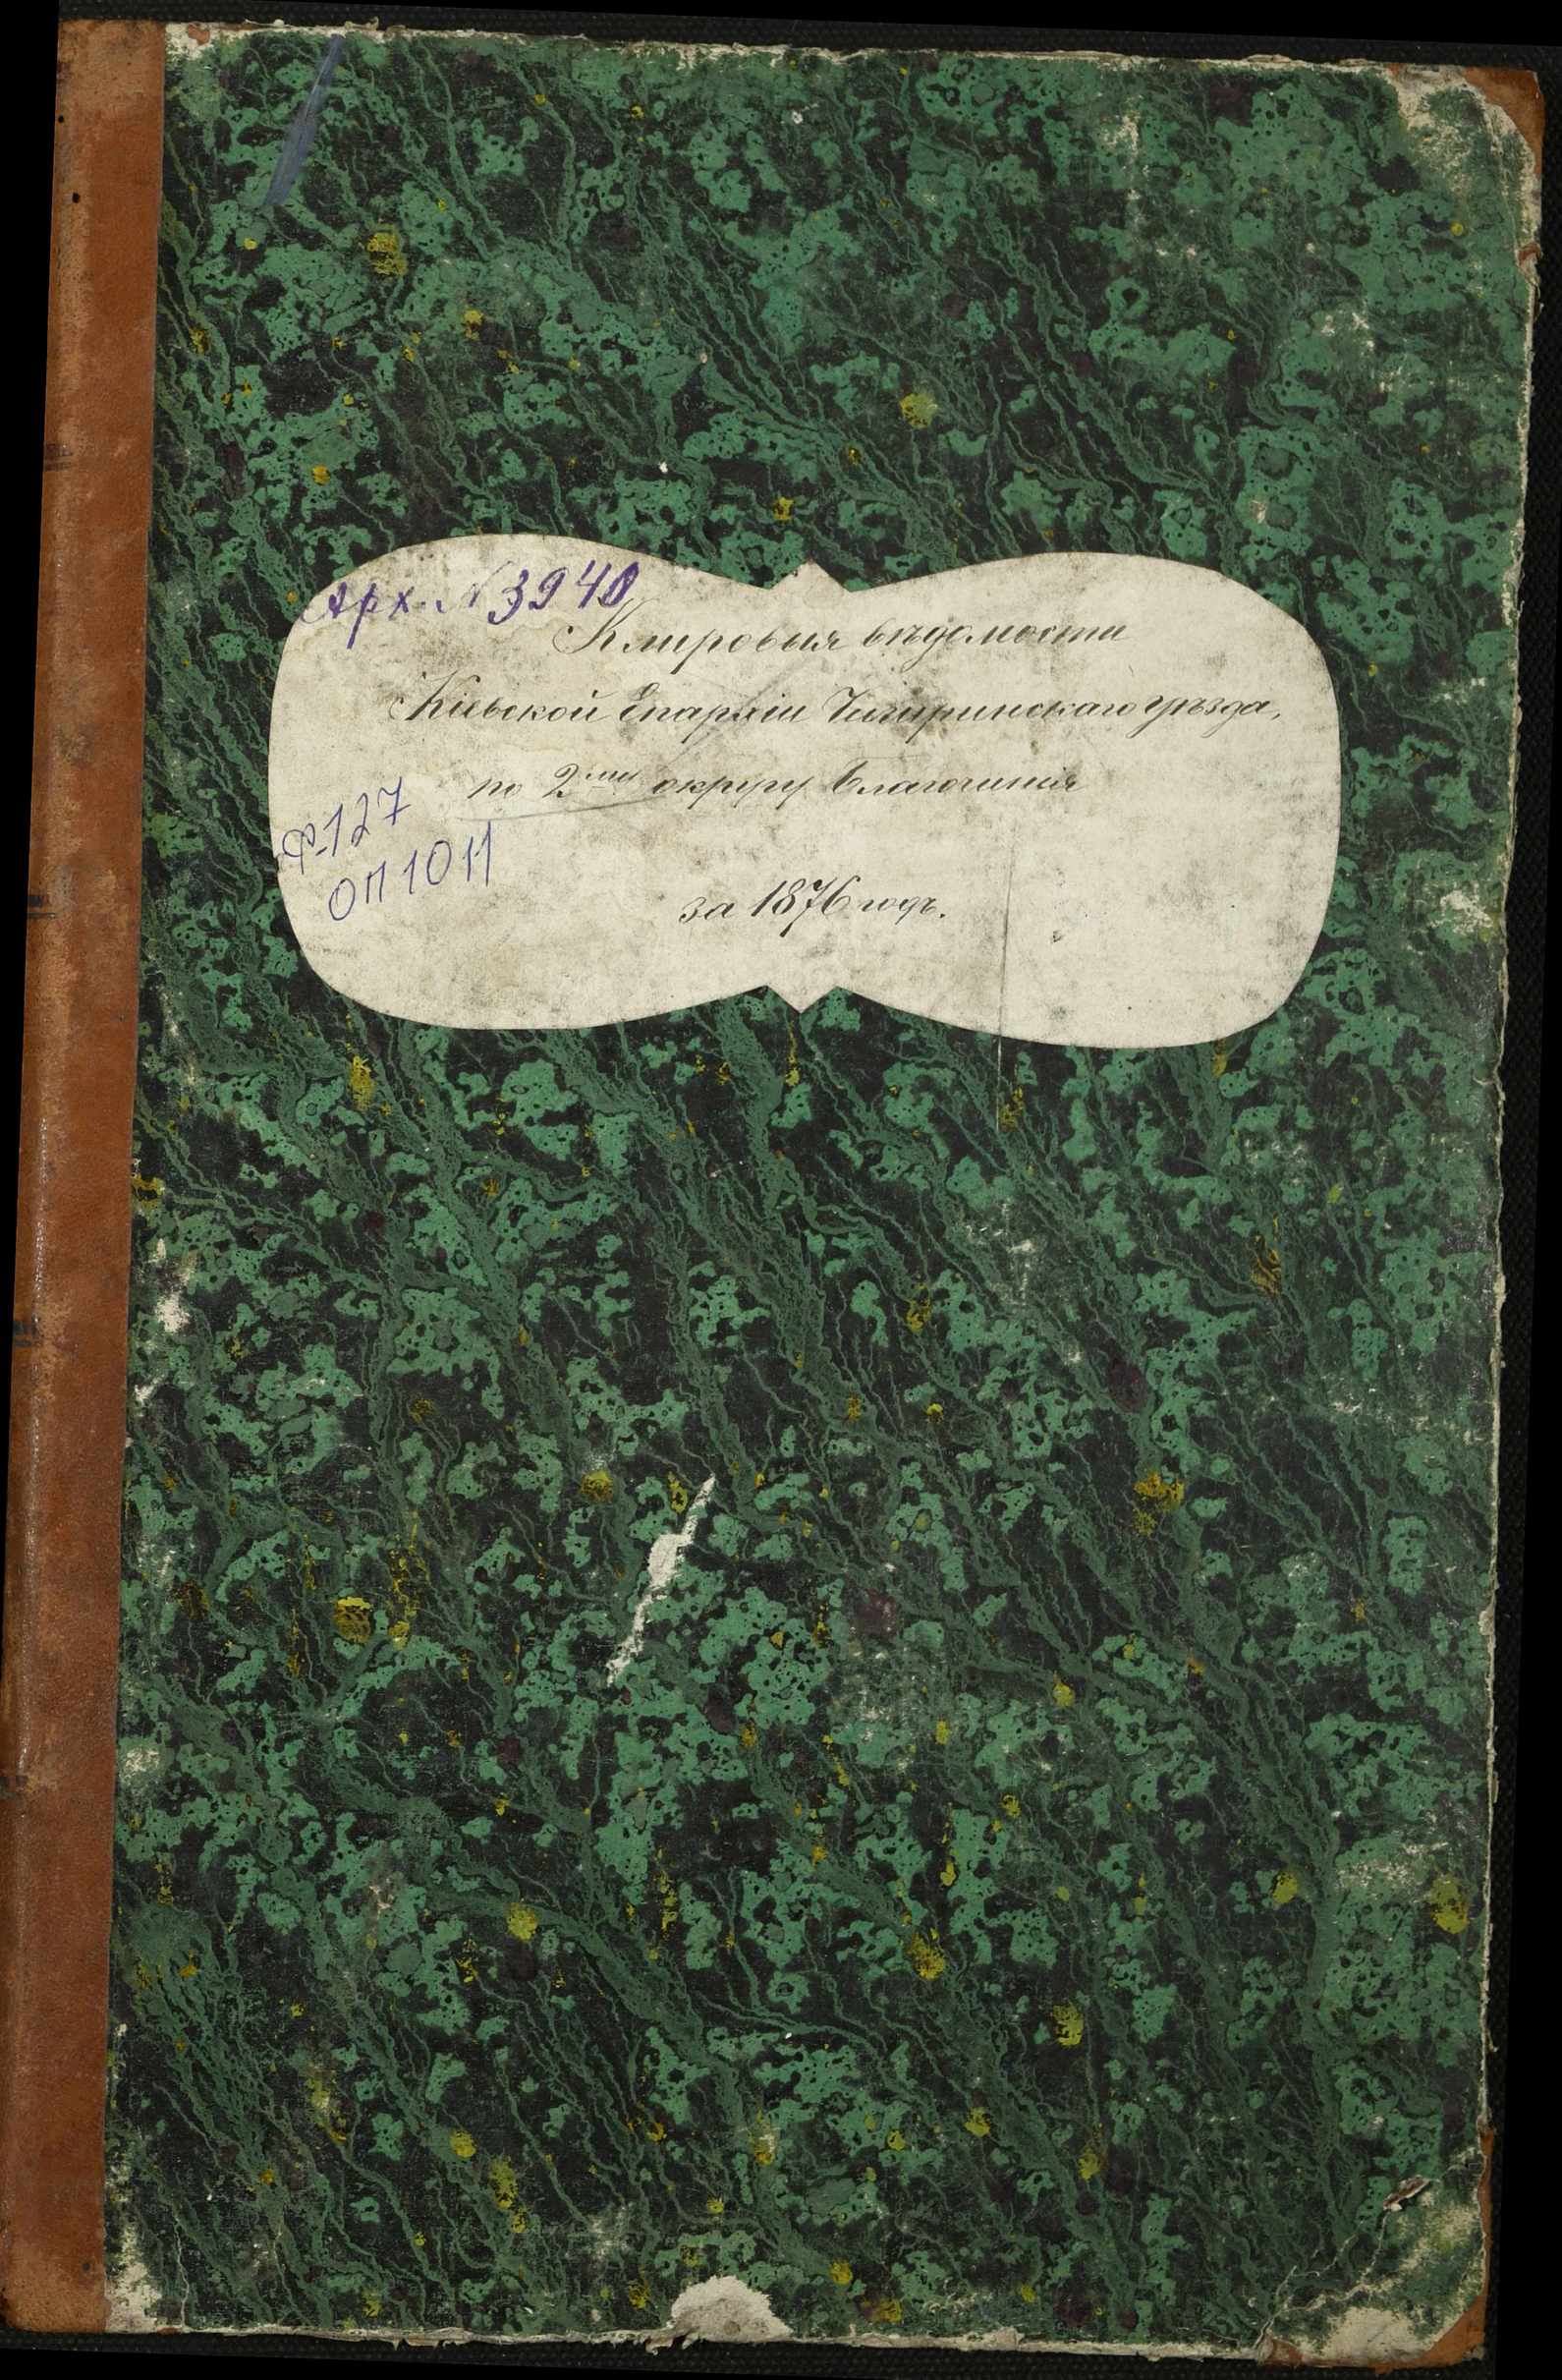 Арх. №3940
Клировыя вѣдомости
Кіевской Епархіи Чигиринскаго уѣзда,
по 2му округу Благочинія
Ф-127
ОП 1011
за 1876 годъ.